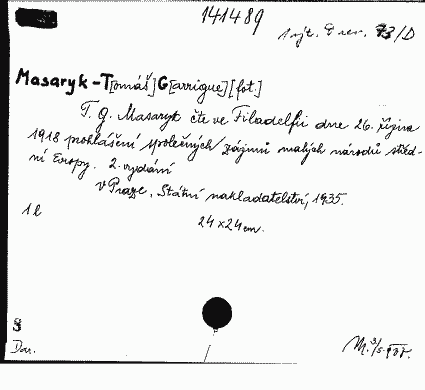 141489
1 výt. 73/D
Masaryk-T[omáš]G[arrigue][fot.]
T. G. Masaryk čte ve Filadelfii dne 26. října
1918 prohlášení společných zájmů malých národů střed-
ní Evropy. 2. vydání
v Praze, Státní nakladatelství, 1935.
1 l
24 x 24 cm.
8
Dar.